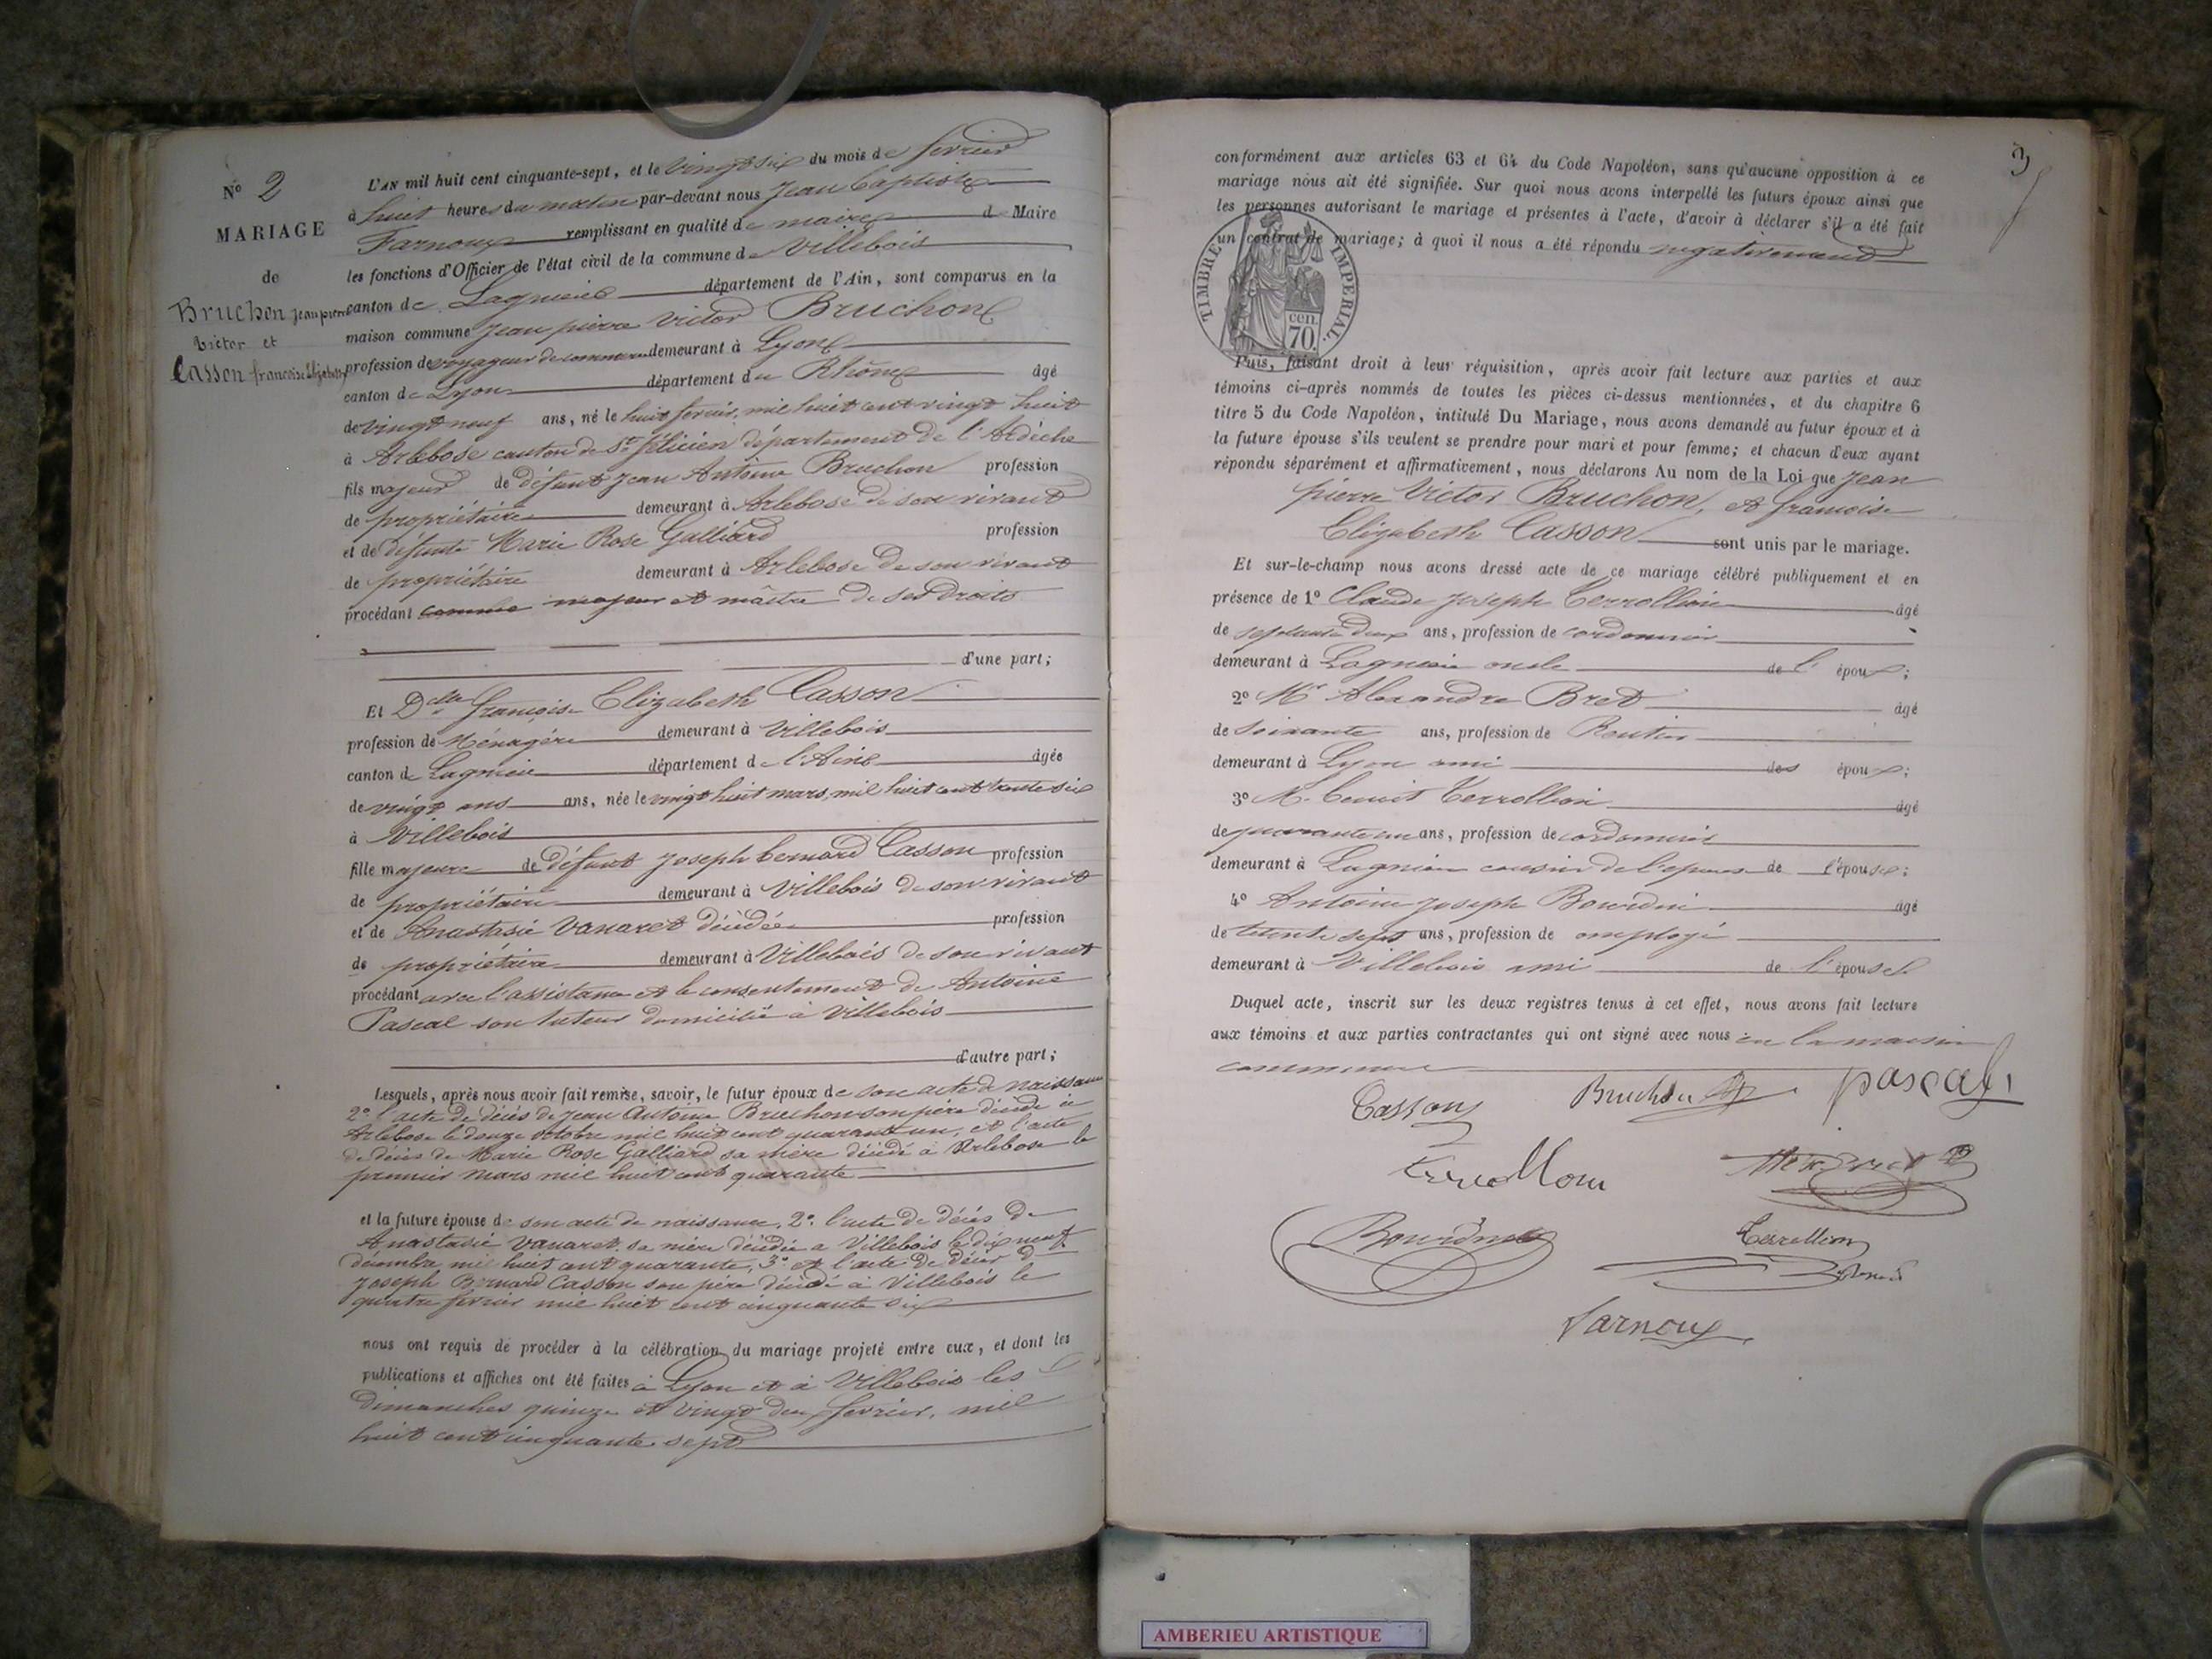 No 2
MARIAGE
de
Bruchon jean pierre
victor et
Casson francoise Elizabeth
L'AN mil huit cent cinquante-sept, et le vingt six du mois de fevrier
à huit heures du matin par-devant nous Jean Baptiste
Farnoux remplissant en qualité de maire d Maire
les fonctions d'Officier de l'état civil de la commune de Villebois
canton de Lagnieu département de l'Ain, sont comparus en la
maison commune Jean pierre Victor Bruchon
profession de voyageur de commerce demeurant à Lyon
canton de Lyon département du Rhône âgé
de vingt neuf ans, né le huit fevrier, mil huit cent vingt huit
à Arlebosc canton de St félicien département de l'Ardèche
fils majeur de défunt Jean Antoine Bruchon profession
de propriétaire demeurant à Arlebosc de son vivant
et de défunte Marie Rose Galliard profession
de propriétaire demeurant à Arlebosc de son vivant
procédant comme majeur et maître de ses droits
d'une part;
Et Delle françoise Elizabeth Casson
profession de Ménagère demeurant à Villebois
canton de Lagnieu département de l'Ain âgée
de vingt ans ans, née le vingt huit mars, mil huit cent trente six
à Villebois
fille majeure de défunt Joseph bernard Casson profession
de propriétaire demeurant à Villebois de son vivant
et de Anastasie Vanaret décédée profession
de propriétaire demeurant à Villebois de son vivant
procédant avec l'assistance et le consentement de Antoine
Pascal son tuteur domicilié à Villebois
d'autre part;
Lesquels, après nous avoir fait remise, savoir, le futur époux de son acte de naissance
2o l'acte de décès de Jean Antoine Bruchon son père décédé à
Arlebosc le douze octobre mil huit cent quarante un, et l'acte
de décès de Marie Rose Galliard sa mère décédé à Arlebosc le
premier mars mil huit cent quarante
et la future épouse de son acte de naissance, 2o l'acte de décès de
Anastasie Vanaret sa mère décédée a Villebois le dix neuf
décembre mil huit cent quarante, 3o et l'acte de décès de
Joseph Bernard Casson son père décédé à Villebois le
quatre fevrier mil huit cent cinquante six
nous ont requis de procéder à la célébration du mariage projeté entre eux, et dont les
publications et affiches ont été faites à Lyon et à Villebois les
dimanches quinze et vingt deux fevrier, mil
huit cent cinquante sept
3
conformément aux articles 63 et 64 du Code Napoléon, sans qu'aucune opposition à ce
mariage nous ait été signifiée. Sur quoi nous avons interpellé les futurs époux ainsi que
les personnes autorisant le mariage et présentes à l'acte, d'avoir à déclarer s'il a été fait
un contrat de mariage; à quoi il nous a été répondu negativement
TIMBRE IMPERIAL.
cen.
70.
Puis, faisant droit à leur réquisition, après avoir fait lecture aux parties et aux
témoins ci-après nommés de toutes les pièces ci-dessus mentionnées, et du chapitre 6
titre 5 du Code Napoléon, intitulé Du Mariage, nous avons demandé au futur époux et à
la future épouse s'ils veulent se prendre pour mari et pour femme; et chacun d'eux ayant
répondu séparément et affirmativement, nous déclarons Au nom de la Loi que Jean
pierre Victor Bruchon, et françoise
Elizabeth Casson sont unis par le mariage.
Et sur-le-champ nous avons dressé acte de ce mariage célébré publiquement et en
présence de 1o Claude Joseph Terrollion âgé
de septante deux ans, profession de cordonnier
demeurant à Lagnieu oncle de l' époux;
2o Mr Alexandre Bret âgé
de soixante ans, profession de Rentier
demeurant à Lyon ami des époux;
3o M. benoit Terrollion âgé
de quarante un ans, profession de cordonnier
demeurant à Lagnieu cousin de l'epouse de l'épouse;
4o Antoine Joseph Bourdin âgé
de trente sept ans, profession de employé
demeurant à Villebois ami de l'épouse
Duquel acte, inscrit sur les deux registres tenus à cet effet, nous avons fait lecture
aux témoins et aux parties contractantes qui ont signé avec nous en la maison
commune
Casson Bruchon pascal
Terrollion Alex Bret
Bourdin Terrollion
Farnoux
AMBERIEU ARTISTIQUE